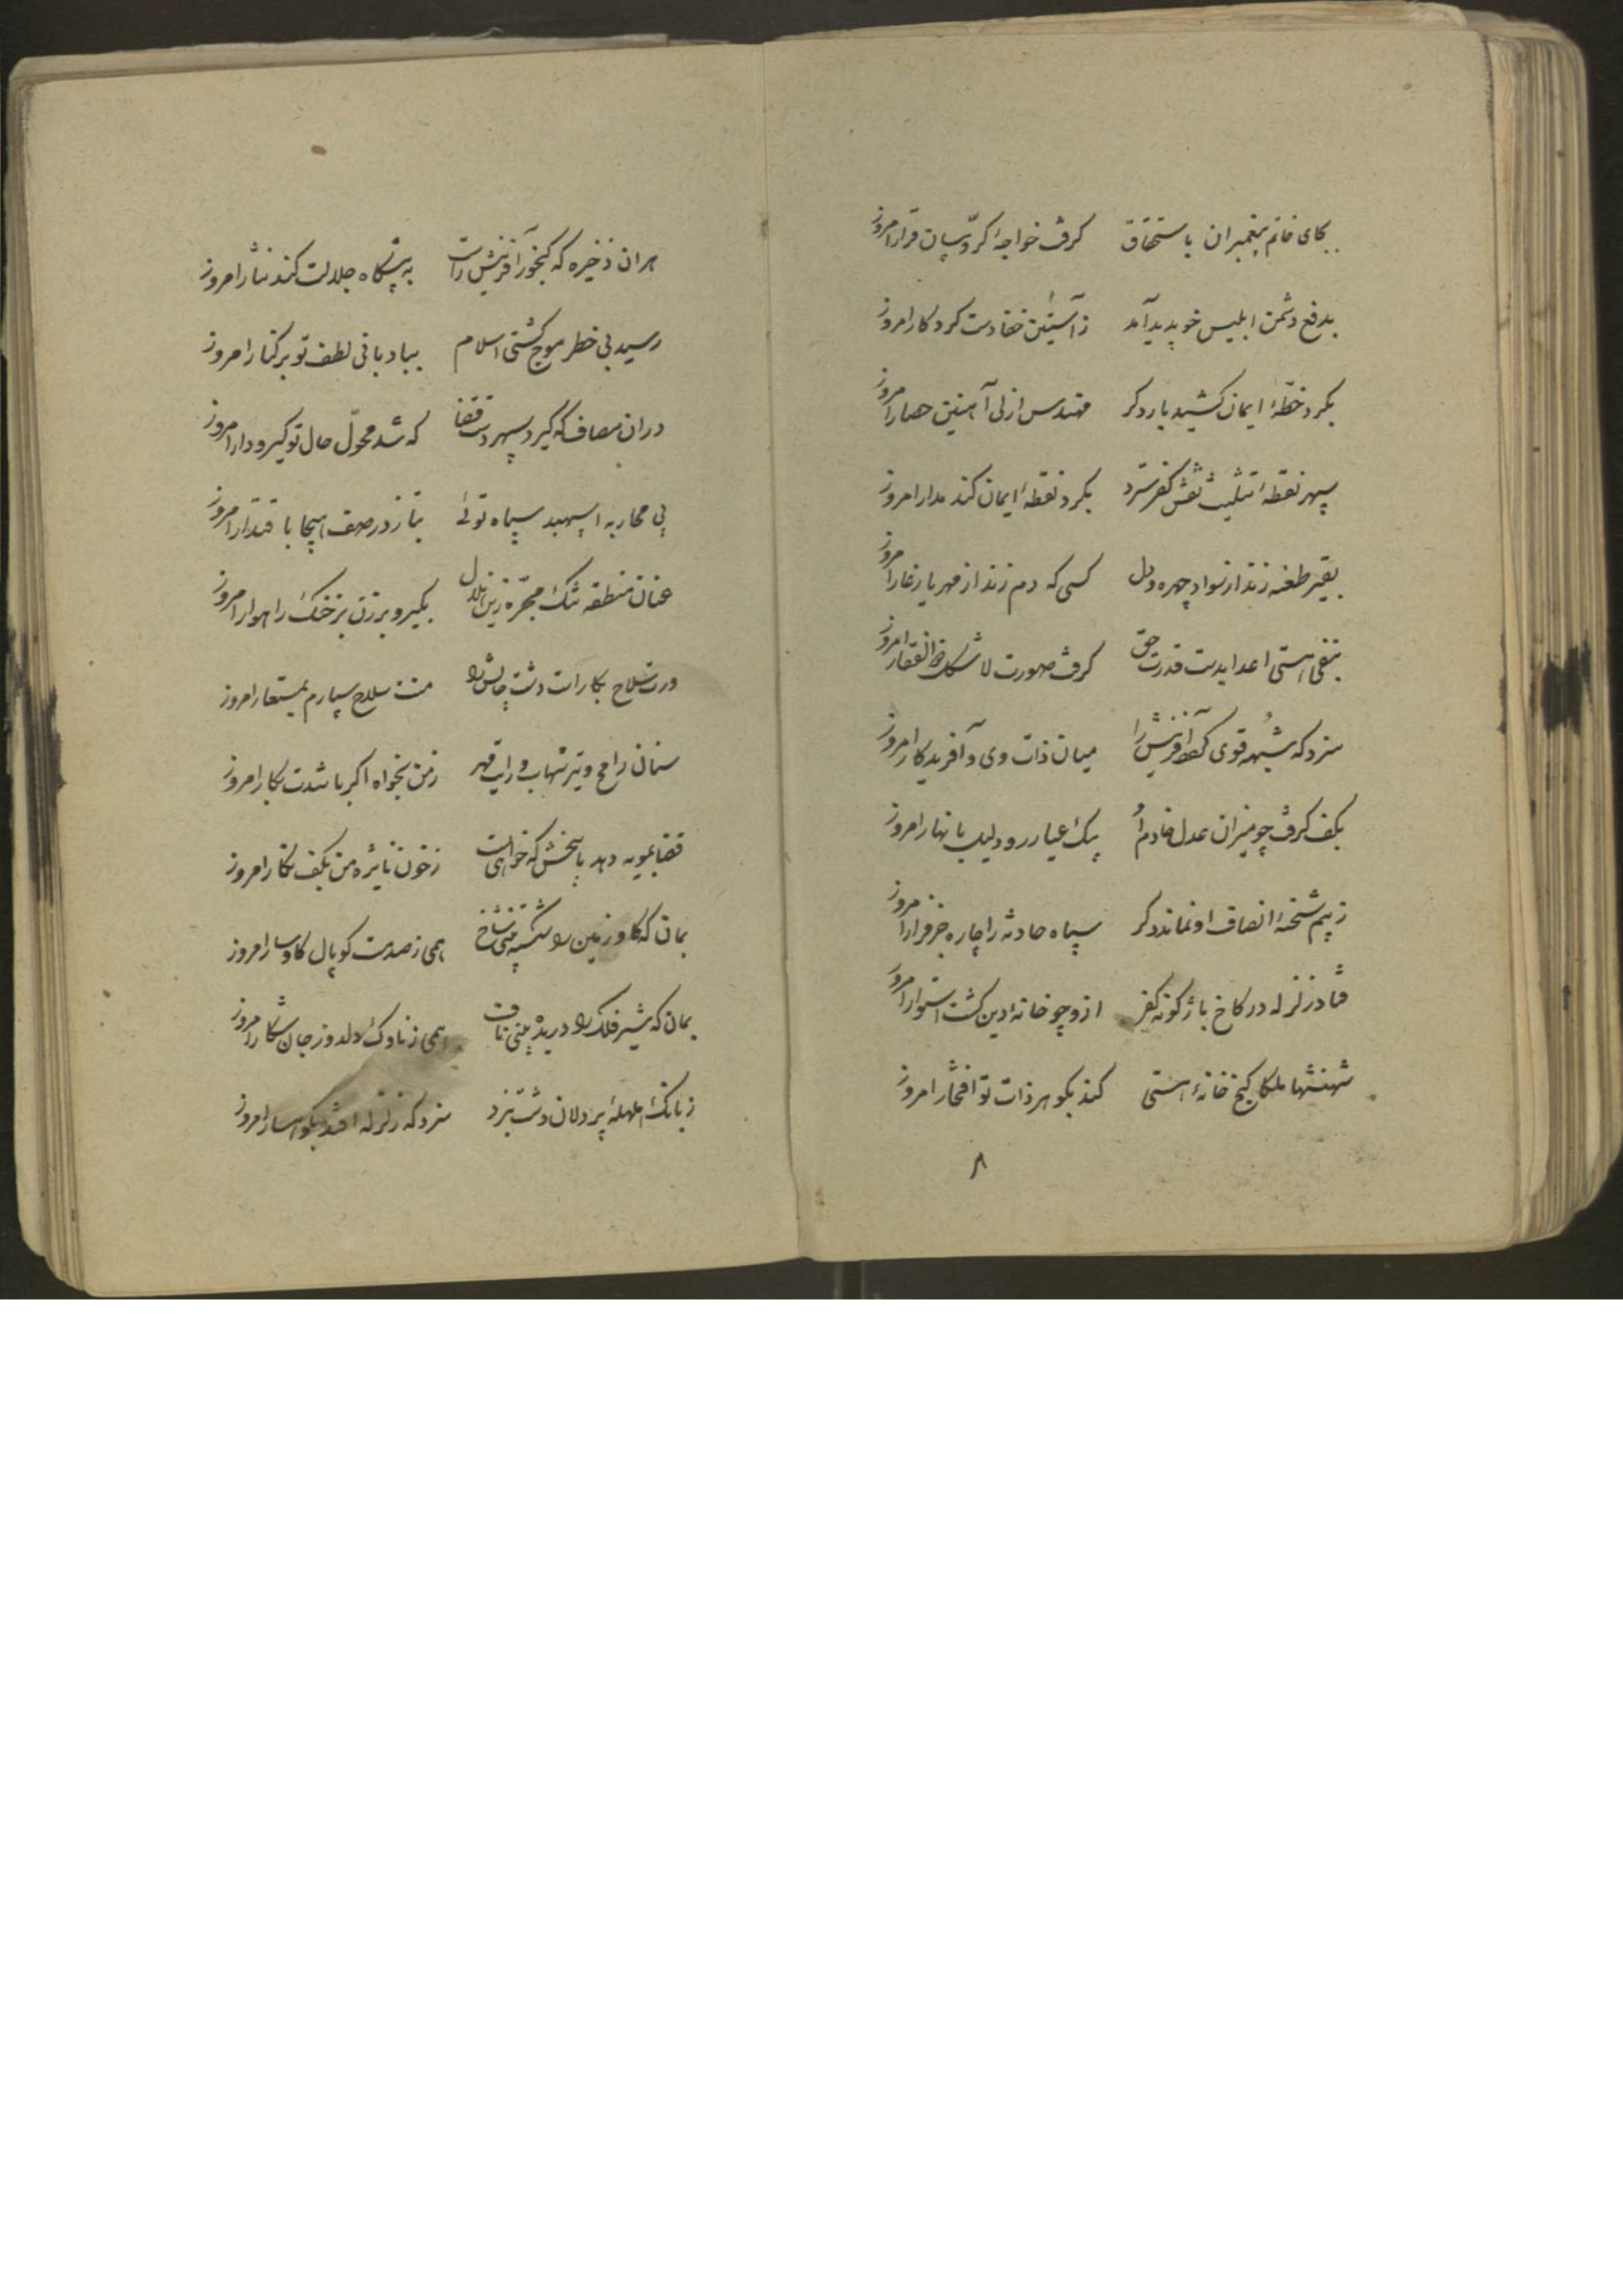 بجای خاتم پیغمبران باستحقاق کرفت خواجهٔ کرّوبیان قرار امروز
بدفع دشمن ابلیس خو پدید آمد ز آستین خفا دست کردکار امروز
بکرد خطّهٔ ایمان کشید بار دکر مهندس ازلی آهنین حصار امروز
سپهر نقطهٔ تثلیث نقش کفر سترد بکرد نقطهٔ ایمان کند مدار امروز
بقیر طعنه زند از سواد چهره و دل کسی که دم زند از مهر یار غار امروز
بنفی هستی اعدا بدست قدرت حق کرفت صورت لا شکل ذوالفقار امروز
سزد که شبهه قوی آفرینش را میان ذات وی و آفریدکار امروز
بکف کرفت چو میزان عدل خادم او بیک عیار رود لیل با نهار امروز
ز بیم شحنهٔ انصاف او نماند دکر سپاه حادثه را چاره جز فرار امروز
فتاد زلزله در کاخ باژکونه کفر ازو چو خانهٔ دین کشت استوار امروز
شهنشها ملکا کنج خانهٔ هستی کند بکوهر ذات تو افتخار امروز
۸
هران ذخیره که کنجور آفرینش راست به پیشکاه جلالت کند نثار امروز
رسید بی خطر موج کشتی اسلام ببادبانی لطف تو بر کنار امروز
دران مصاف که کیرد سپهر دست قضا که شد محوّل حال تو کیرودار امروز
پی محاربه اسپهبد سپاه توئی بتاز در صف هیجا باقتدار امروز
عنان منطقه تنک مجرّه زین هلال بکیر و برزن بر خنک راهوار امروز
ورت سلاح بکارات دشت چالش را منت سلاح سپارم بمستعار امروز
سنان رامح و تیر شهاب و رایت قهر ز من بخواه اکر باشدت بکار امروز
قضا بمویه دهد پاسخش که خواهی ز خون نایره من بکف نکار امروز
بمان که کاو زمین را شکسته بینی شاخ همی ز صدمت کوپال کاوسار امروز
بمان که شیر فلک را دریده بینی ناف همی ز ناوک دلدوز جان شکار امروز
ز بانک هلهلهٔ پردلان دشت نبرد سزد که زلزله افتد بکوهسار امروز